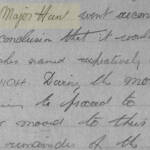 Major Hunt went
conclusion that it would
named respectively
During the mo
to proceed to
moved to this
remainder of the